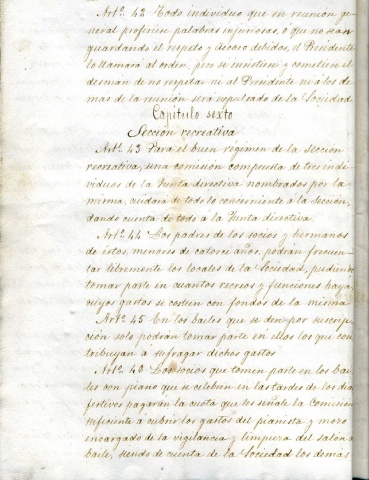 Artº. 42 Todo individuo que en reunión ge-
neral profiera palabras injuriosas, ó que no sean
guardando el respeto y decoro debidos, el Presidente
lo llamará al orden, pero si insisten y cometen el
desmán de no respetar ni al Presidente ni á los de-
mas de la reunión será expulsado de la Sociedad
Capítulo sexto
Sección recreativa
Artº. 43 Para el buen régimen de la Sección
recreativa, una comisión compuesta de tres indi-
viduos de la Junta directiva nombrados por la
misma, cuidará de todo lo concerniente á la Sección,
dando cuenta de todo á la Junta directiva
Artº. 44 Los padres de los socios y hermanos
de éstos, menores de catorce años, podrán frecuen-
tar libremente los locales de la Sociedad, pudiendo
tomar parte en cuantos recreos y funciones haya,
cuyos gastos se costeen con fondos de la misma
Artº. 45 En los bailes que se den por suscrip-
ción solo podrán tomar parte en ellos los que con-
tribuyan á sufragar dichos gastos
Artº. 46 Los socios que tomen parte en los bai-
les con piano que se celebren en las tardes de los dias
festivos pagarán la cuota que les señale la Comisión
suficiente á cubrir los gastos del pianista y mozo
encargado de la vigilancia y limpieza del salon de
baile, siendo de cuenta de la Sociedad los demas